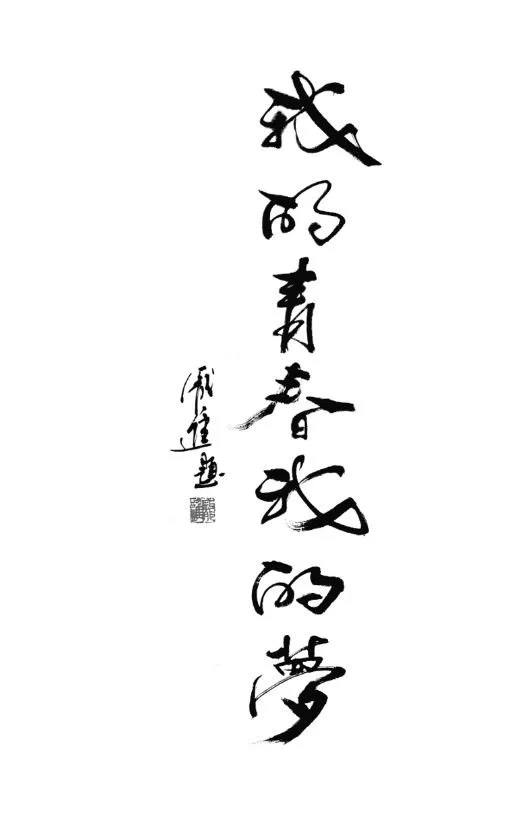 我的青春我的夢
進題